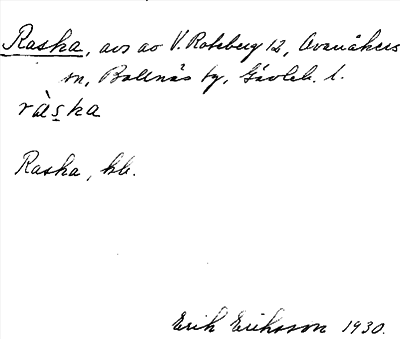 Raska, avs av V. Roteberg 12, Ovanåkers
sn, Bollnäs tg, Gävleb. l.
ràska
Raska, hb.
Erik Eriksson 1930.